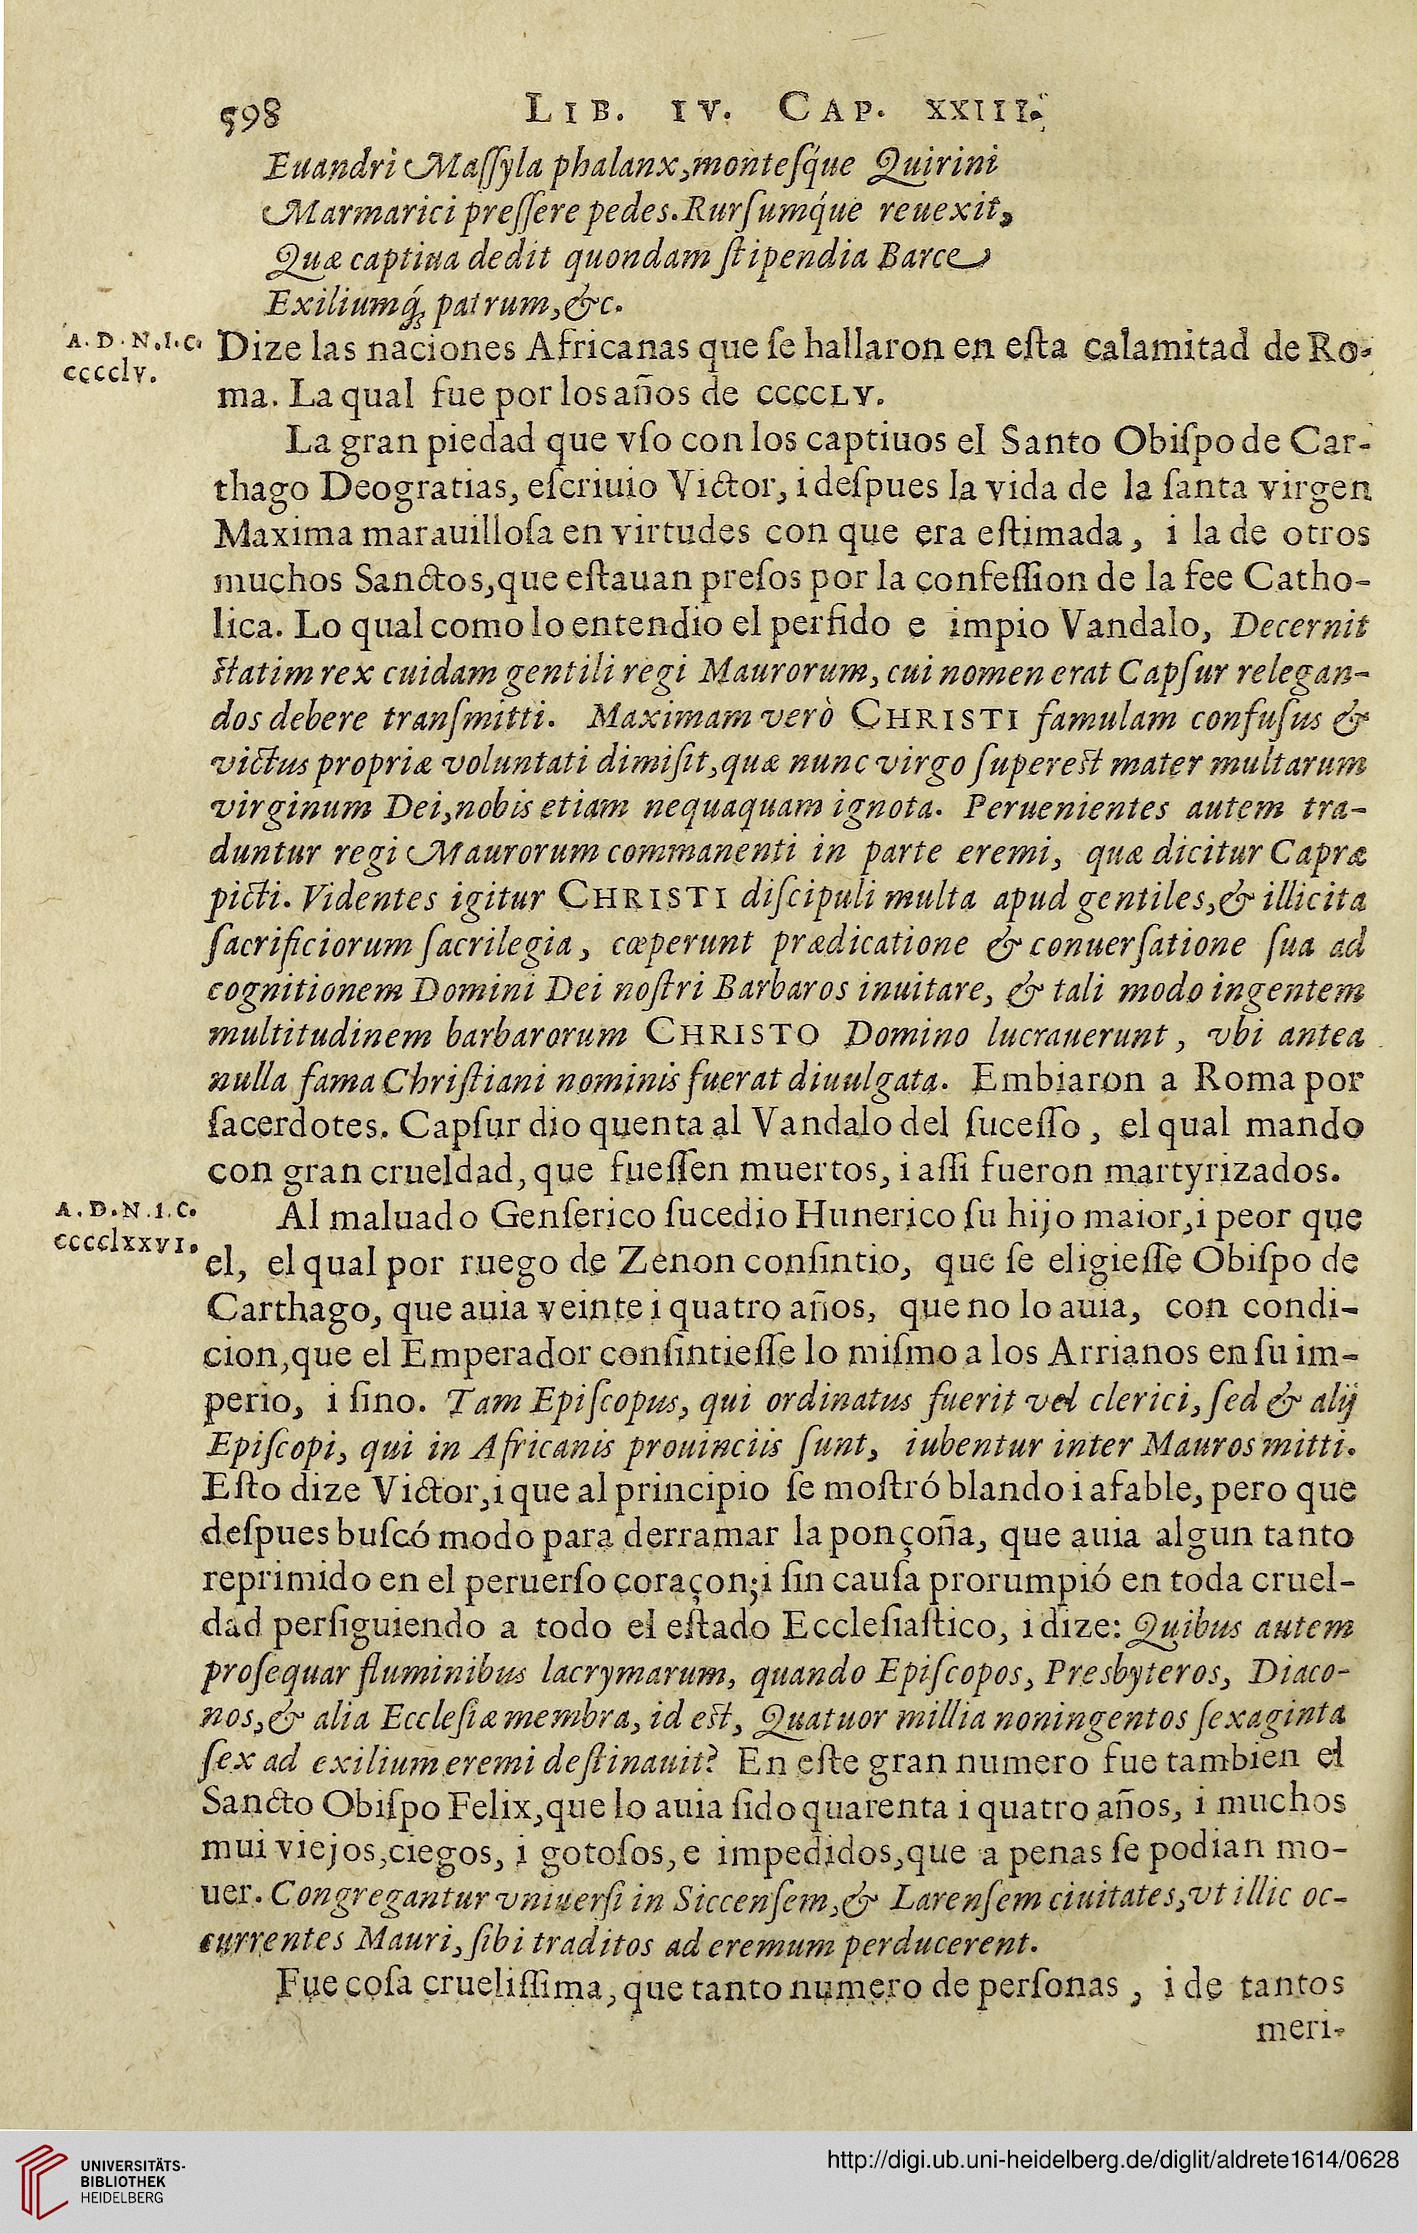 598 LIB. IV. CAP. XXIII.
Euandri Maſſyla phalanx, monteſq́ue Quirini
Marmarici preſſere pedes. Rurſumq́ue reuexit,
Quæ captiua dedit quondam ſtipendia Barce
Exiliumq́; patrum, &c.
A. D. N. I. C.
cccclv.
Dize las naciones Africanas que ſe hallaron en eſta calamitad de Ro-
ma. La qual fue por los años de CCCCLV.
La gran piedad que vſo con los captiuos el Santo Obiſpo de Car-
thago Deogratias, eſcriuio Victor, i deſpues la vida de la ſanta virgen
Maxima marauilloſa en virtudes con que era eſtimada, i la de otros
muchos Sanctos, que eſtauan preſos por la confeſſion de la fee Catho-
lica. Lo qual como lo entendio el perfido e impio Vandalo, Decernit
ſtatim rex cuidam gentili regi Maurorum, cui nomen erat Capſur relegan-
dos debere tranſmitti. Maximam verò CHRISTI famulam confuſus &
victus propriæ voluntati dimiſit, quæ nunc virgo ſupereſt mater multarum
virginum Dei, nobis etiam nequaquam ignota. Peruenientes autem tra-
duntur regi Maurorum commanenti in parte eremi, quæ dicitur Capræ
picti. Videntes igitur CHRISTI diſcipuli multa apud gentiles, & illicita
ſacrificiorum ſacrilegia, cœperunt prædicatione & conuerſatione ſua ad
cognitionem Domini Dei noſtri Barbaros inuitare, & tali modo ingentem
multitudinem barbarorum CHRISTO Domino lucrauerunt, vbi antea
nulla fama Chriſtiani nominis fuerat diuulgata. Embiaron a Roma por
ſacerdotes. Capſur dio quenta al Vandalo del ſuceſſo, el qual mando
con gran crueldad, que fueſſen muertos, i aſſi fueron martyrizados.
A. D. N. I. C.
cccclxxvi.
Al maluado Genſerico ſucedio Hunerico ſu hijo maior, i peor que
el, el qual por ruego de Zenon conſintio, que ſe eligieſſe Obiſpo de
Carthago, que auia veinte i quatro años, que no lo auia, con condi-
cion, que el Emperador conſintieſſe lo miſmo a los Arrianos en ſu im-
perio, i ſino. Tam Epiſcopus, qui ordinatus fuerit vel clerici, ſed & alij
Epiſcopi, qui in Africanis prouinciis ſunt, iubentur inter Mauros mitti.
Eſto dize Victor, i que al principio ſe moſtró blando i afable, pero que
deſpues buſcó modo para derramar la ponçoña, que auia algun tanto
reprimido en el peruerſo coraçon; i ſin cauſa prorumpió en toda cruel-
dad perſiguiendo a todo el eſtado Eccleſiaſtico, i dize: Quibus autem
proſequar fluminibus lacrymarum, quando Epiſcopos, Presbyteros, Diaco-
nos, & alia Eccleſiæ membra, id eſt, Quatuor millia noningentos ſexaginta
ſex ad exilium eremi deſtinauit? En eſte gran numero fue tambien el
Sancto Obiſpo Felix, que lo auia ſido quarenta i quatro años, i muchos
mui viejos, ciegos, i gotoſos, e impedidos, que a penas ſe podian mo-
uer. Congregantur vniuerſi in Siccenſem, & Larenſem ciuitates, vt illic oc-
currentes Mauri, ſibi traditos ad eremum perducerent.
Fue coſa crueliſſima, que tanto numero de perſonas, i de tantos
meri-
UNIVERSITÄTS-
BIBLIOTHEK
HEIDELBERG
http://digi.ub.uni-heidelberg.de/diglit/aldrete1614/0628